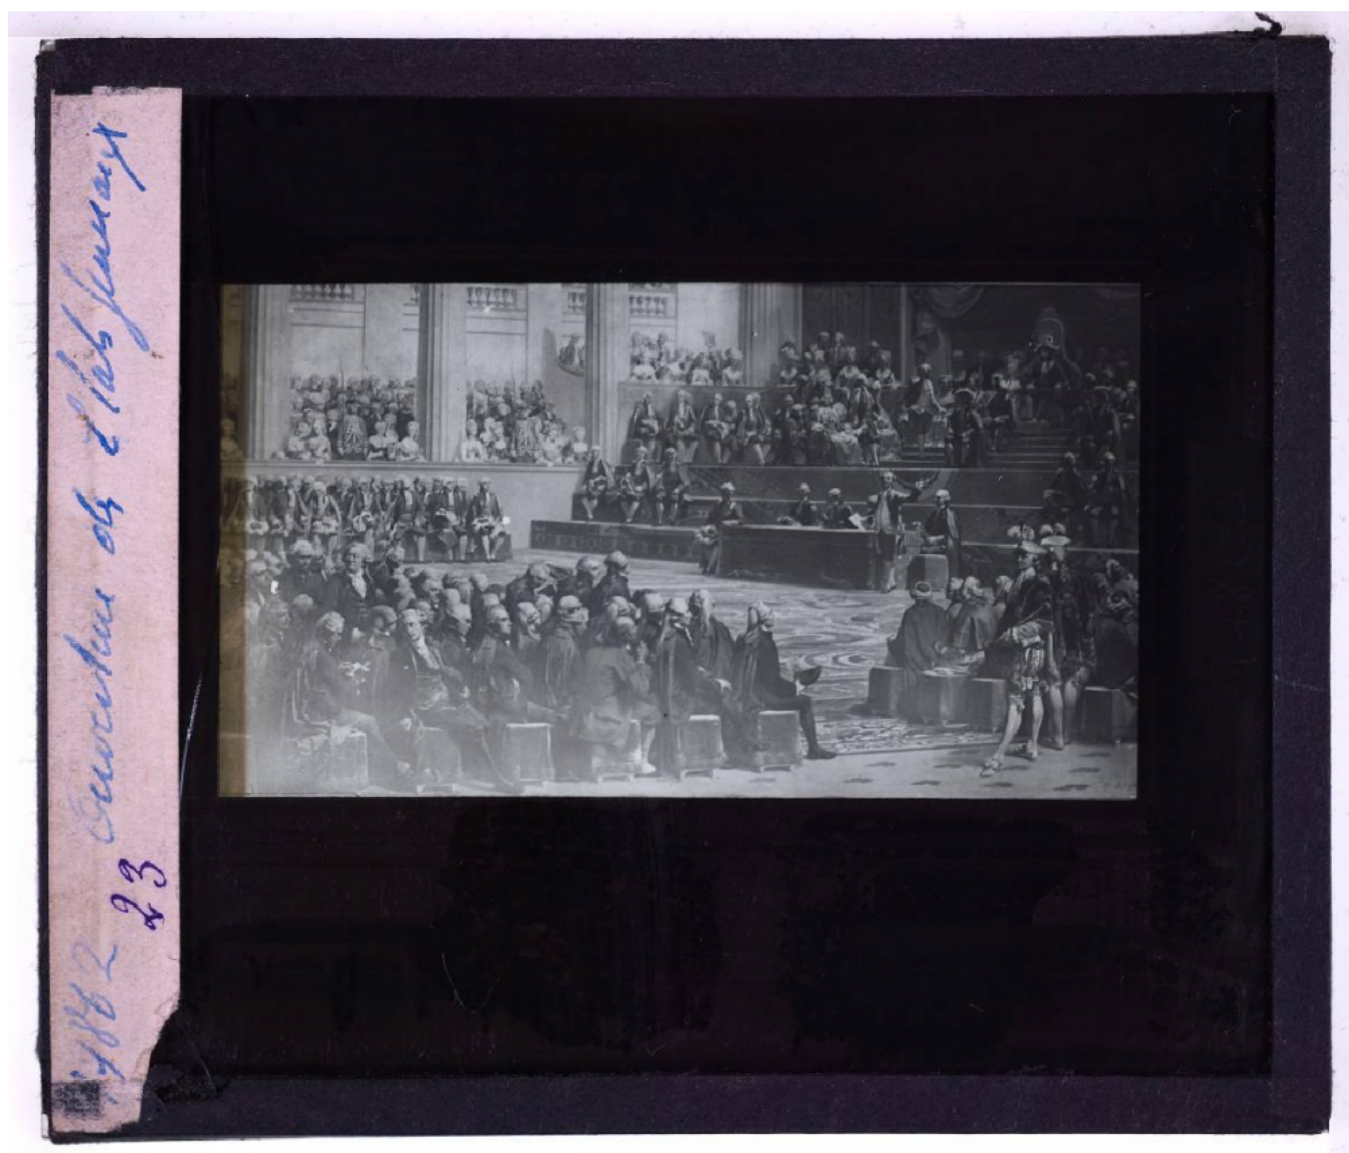 1782 Ouverture des Etats généraux
23